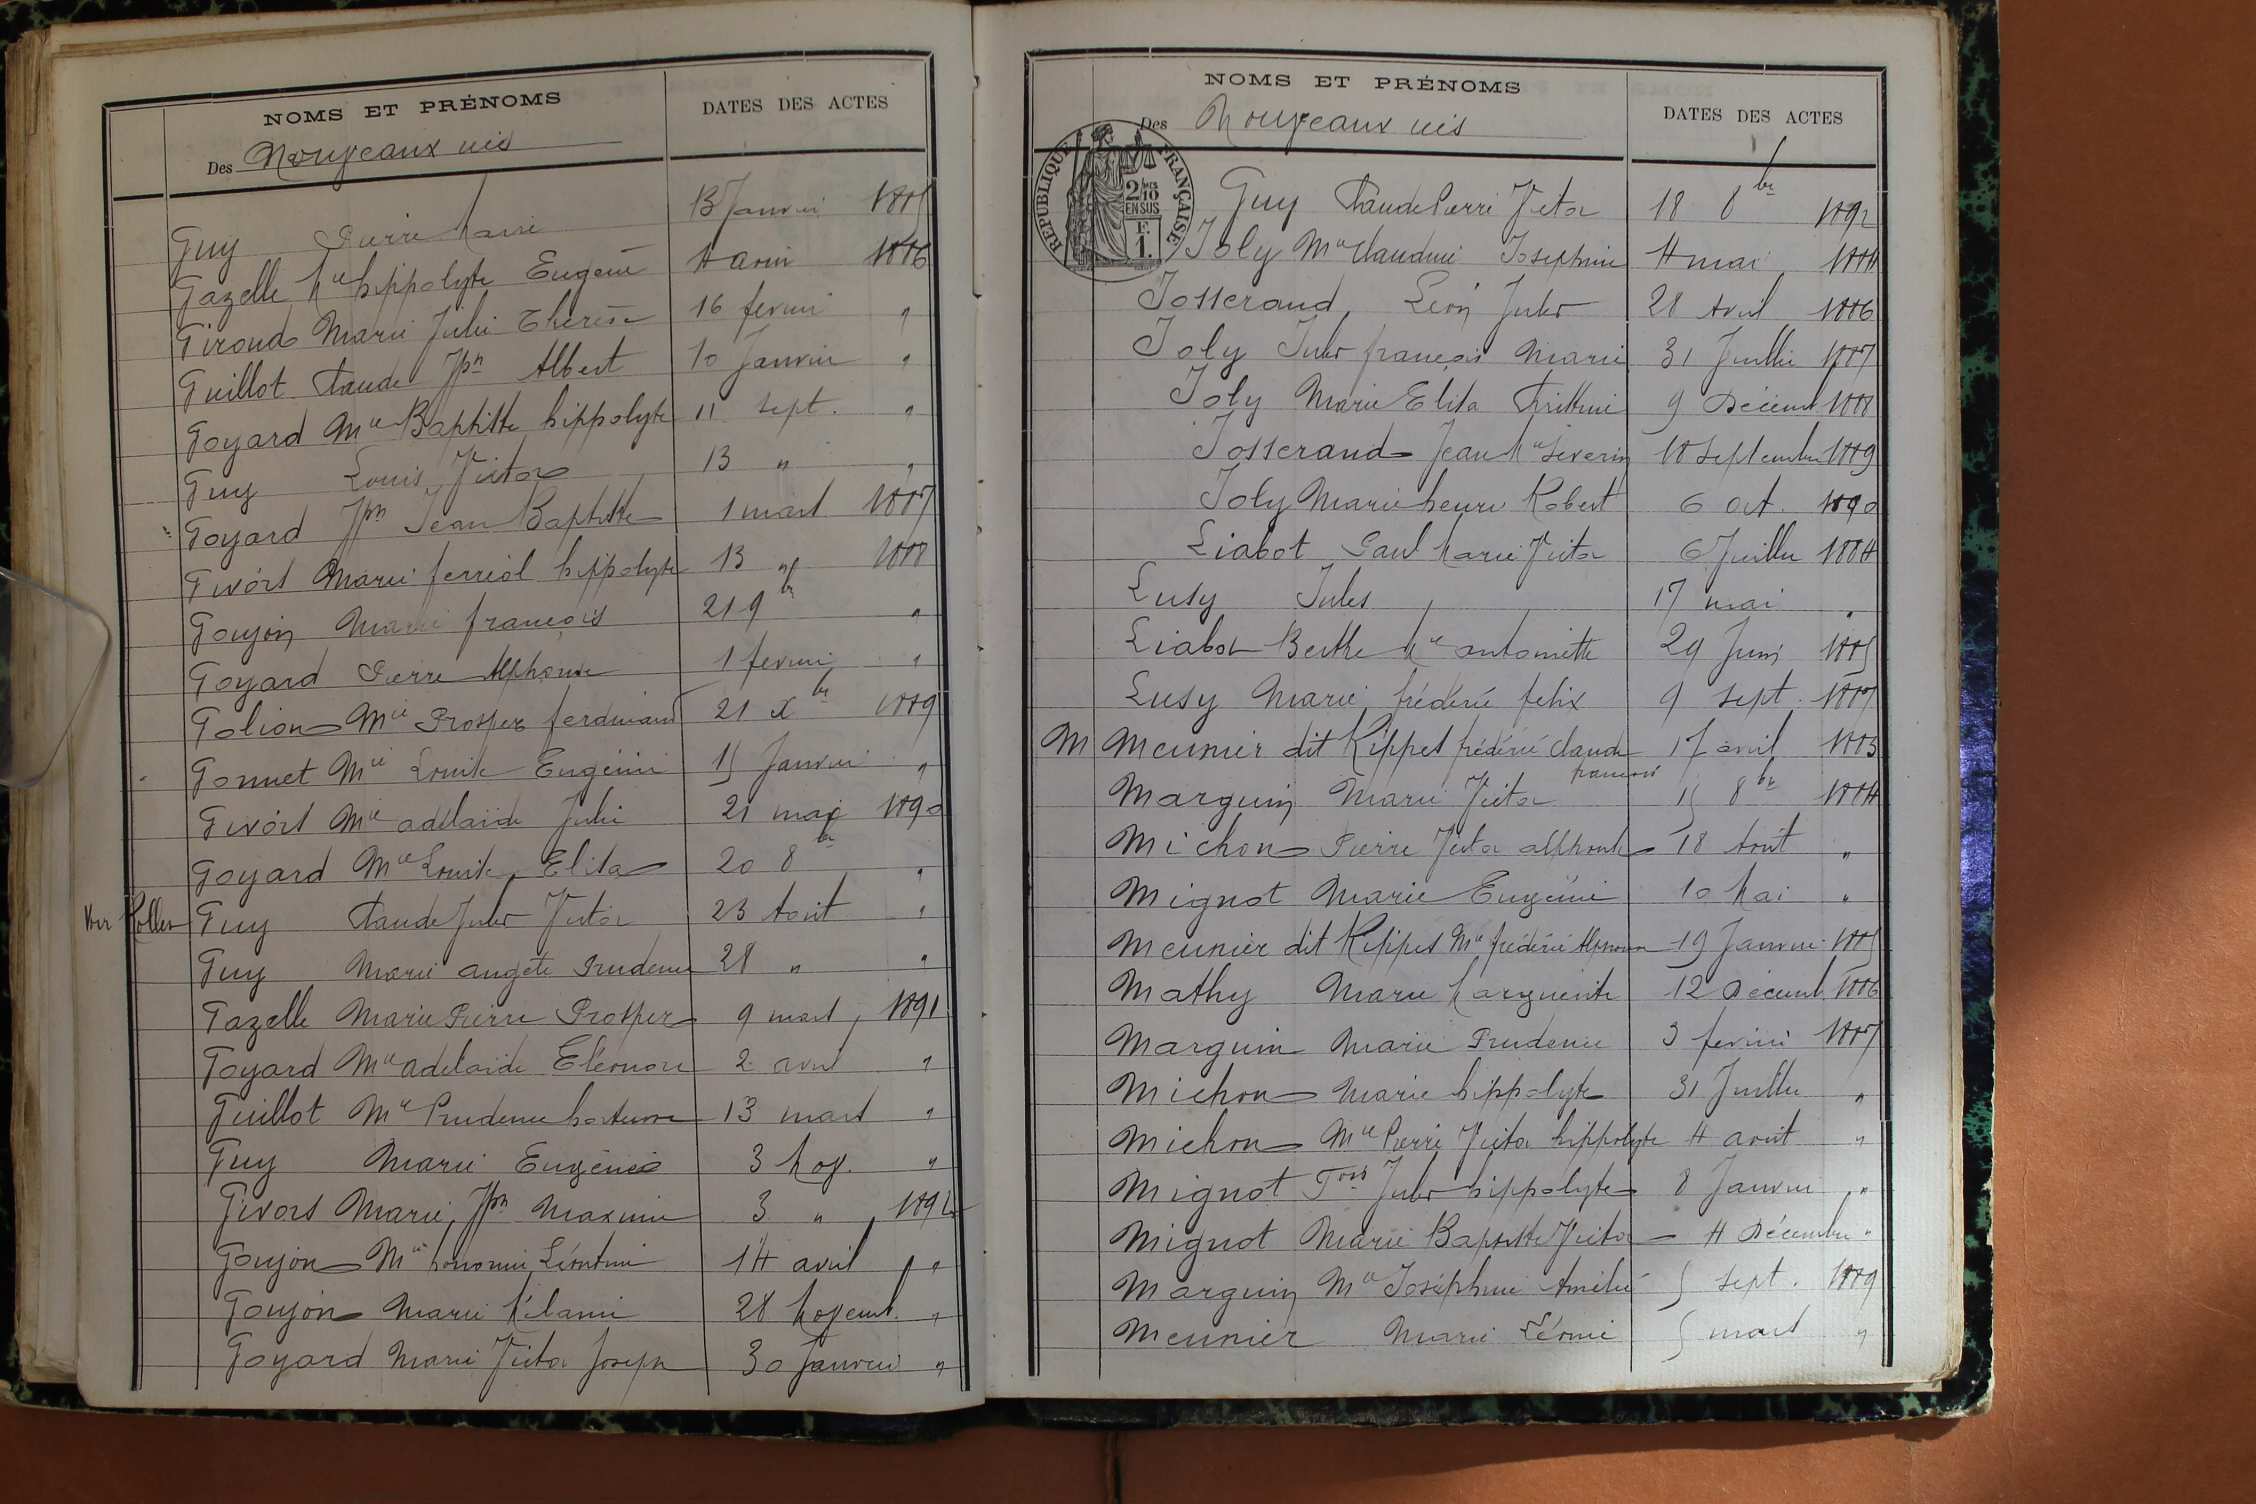 NOMS ET PRÉNOMS
DATES DES ACTES
Des Nouveaux nés
Guy Pierre Marie 13 Janvier 1885
Gazelle Mie hippolyte Eugene 4 avril 1886
Giroud Marie Julie Thérèse 16 fevrier "
Guillot Claude Jph Albert 10 Janvier "
Goyard Mie Baptiste hippolyte 11 sept. "
Guy Louis Victor 13 " "
Goyard Jph Jean Baptiste 1 mars 1887
Givors Marie ferréol hippolyte 13 " 1888
Goujon Marie françois 21 9br "
Goyard Pierre Alphonse 1 fevrier "
Golion Mie Prosper ferdinand 21 Xbr 1889
Gonnet Mie Louise Eugénie 15 Janvier "
Givors Mie adélaïde Julie 21 mai 1890
Goyard Mie Louise Elisa 20 8br "
Guy Claude Jules Victor 23 Août "
Guy Marie angéle Prudence 28 " "
Gazelle Marie Pierre Prosper 9 mars 1891
Goyard Mie adelaïde Eléonore 2 avril "
Guillot Mie Prudence hortense 13 mars "
Guy Marie Eugénie 3 Nov. "
Givors Marie Jph Maxime 3 " 1892
Goujon Mie honorine Léontine 14 avril "
Goujon Marie Mélanie 28 Novemb. "
Goyard Marie Victor Joseph 30 Janvier "
NOMS ET PRÉNOMS
DATES DES ACTES
Des Nouveaux nés
RÉPUBLIQUE FRANÇAISE
2/10
EN SUS
F.
1.
Guy Claude Pierre Victor 18 8br 1892
Joly Mie Claudine Josephine 4 mai 1884
Josserand Léon Jules 28 Avril 1886
Joly Jules françois Marie 31 Juillet 1887
Joly Marie Elisa Christine 9 Décemb 1888
Josserand Jean Mie Séverin 18 Septembre 1889
Joly Marie henri Robert 6 Oct. 1890
Liabot Paul Marie Victor 6 Juillet 1884
Lusy Jules 17 mai "
Liabot Berthe Mie antoinette 29 Juin 1885
Lusy Marie fréderic felix 9 sept. 1887
M Meunier dit Rippet fréderic Claude françois 17 avril 1883
Marguin Marie Victor 15 8br 1884
Michon Pierre Victor alphonse 18 Août "
Mignot Marie Eugénie 10 Mai "
Meunier dit Rippet Mie fréderic Alphonse 19 Janvier 1885
Mathy Marie Marguerite 12 Décemb 1886
Marguin Marie Prudence 3 fevrier 1887
Michon Marie hippolyte 31 Juillet "
Michon Mie Pierre Victor hippolyte 4 août "
Mignot Fois Jules hippolyte 8 Janvier "
Mignot Marie Baptiste Victor 4 Décembre "
Marguin Mie Joséphine Amélie 5 sept. 1889
Meunier Marie Léonie 5 mars "